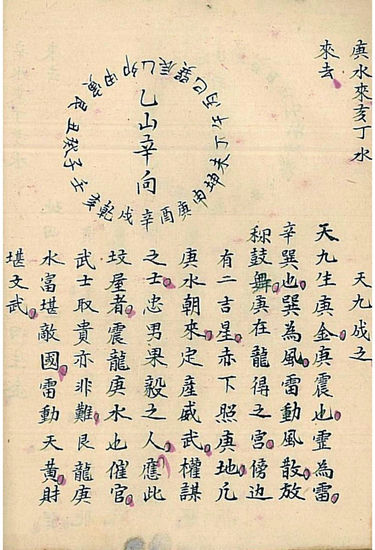 庚水來亥丁水
來去
乙山辛向
壬子癸丑艮寅甲卯乙辰巽巳丙午丁未坤申庚酉辛戌乾亥
天九成之
天九生庚金庚震也霊為雷
辛巽也巽為風雷動風散放
鼓舞庚在龍得之宮傍边
有二吉星赤下照庚地凡
庚水朝來定產威武權謀
之士忠男果毅之人應此
坟屋者震龍庚水也催官
武士取貴亦非難艮龍庚
水富堪敵國雷動天黃財
堪文武